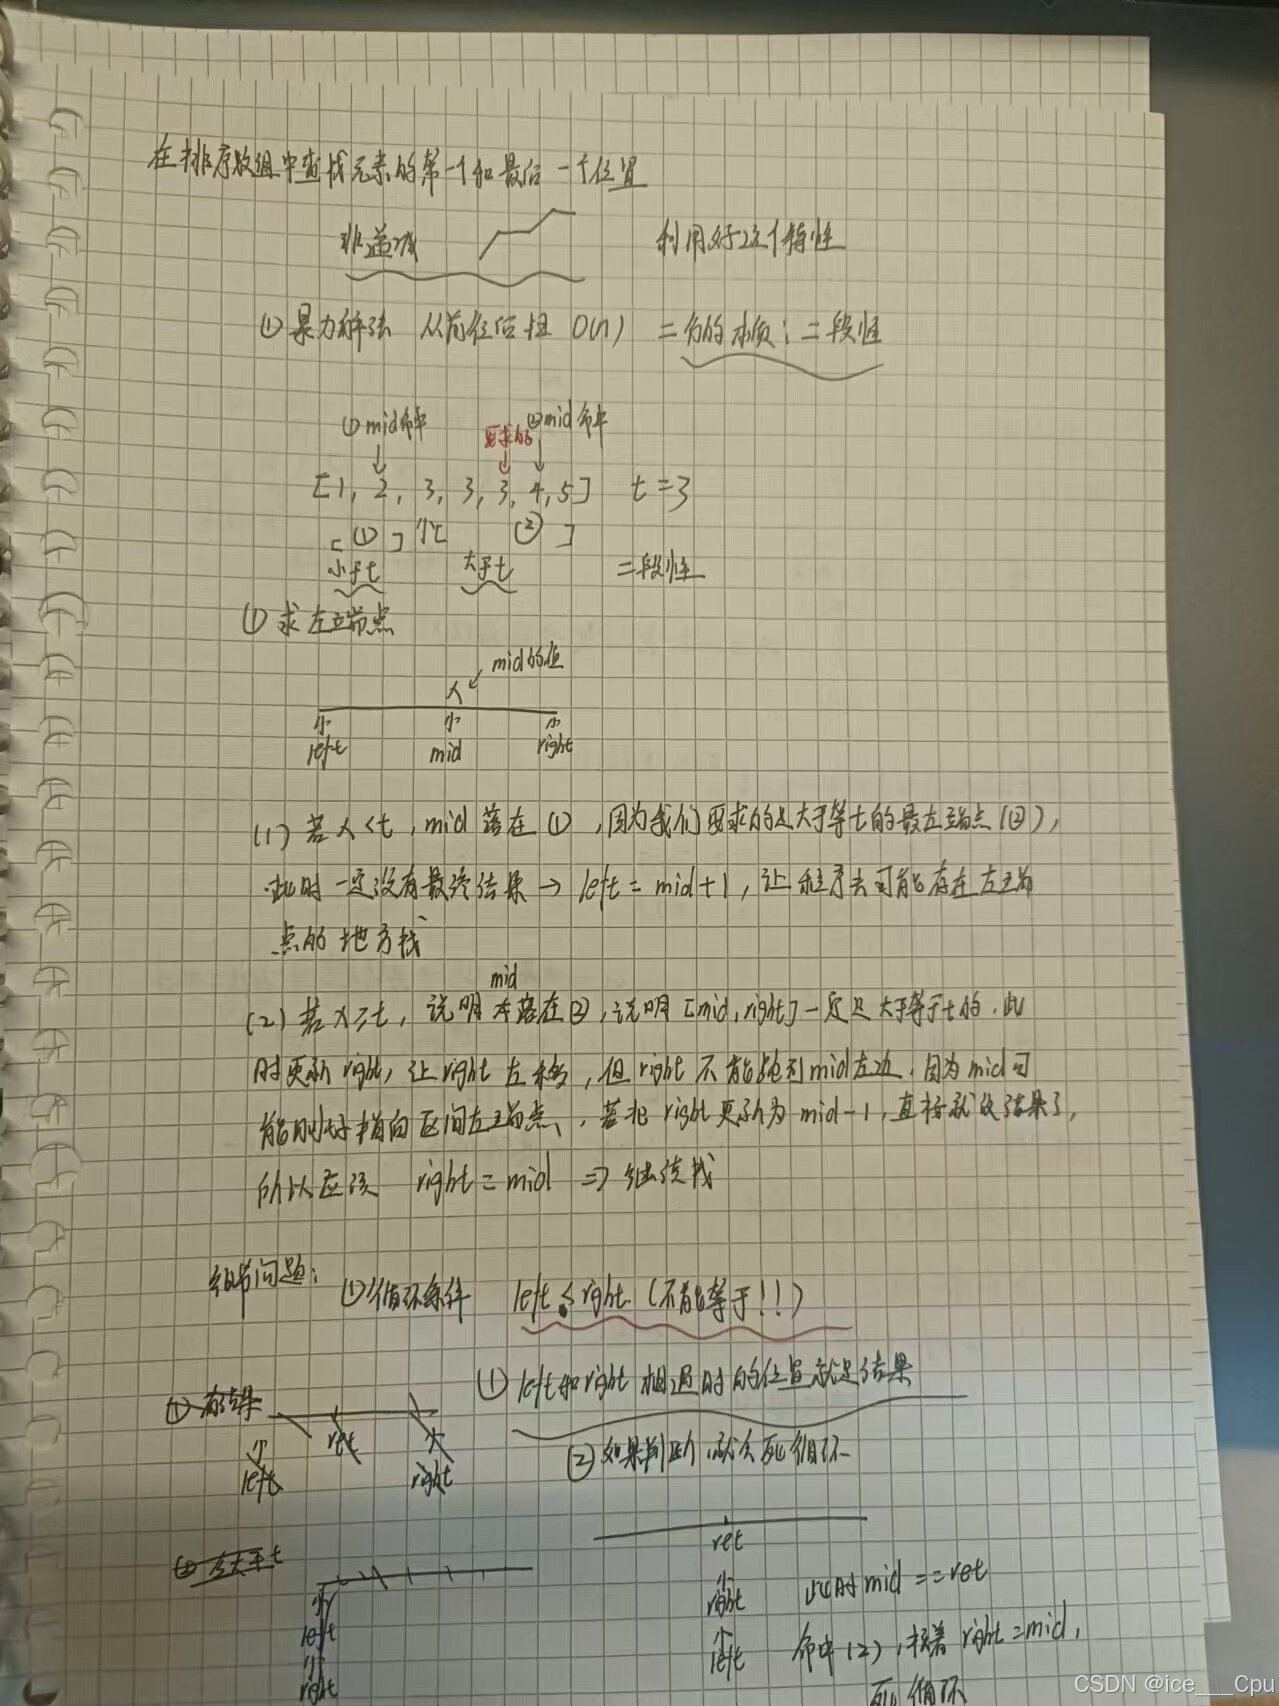 在排序数组中查找元素的第一个和最后一个位置
非递减 利用好这个特性
① 暴力解法 从前往后扫 O(n) 二分的本质:二段性
①mid命中 要求的 ②mid命中
[1, 2, 3, 3, 3, 4, 5] t=3
[ ① ] [ ② ]
小于t 大于t 二段性
① 求左端点
mid的值
x
left mid right
(1) 若x<t, mid落在①, 因为我们要求的是大于等t的最左端点(②),
此时一定没有最终结果→left = mid+1, 让程序去可能存在左端
点的地方找
mid
(2) 若x≥t, 说明落在②, 说明[mid, right]一定是大于等于t的. 此
时更新right, 让right左移, 但right不能跑到mid左边. 因为mid可
能刚好指向区间左端点, 若把right更新为mid-1, 直接就没结果了,
所以应该 right = mid ⇒ 继续找
细节问题: ①循环条件 left < right. (不能等于!!)
① left和right相遇时的位置就是结果
① 有结果
ret
left right
② 如果判断, 就会死循环
ret
② 全大于t
left
right
right 此时mid == ret
left 命中(2), 接着right = mid,
死循环
CSDN @ice___Cpu